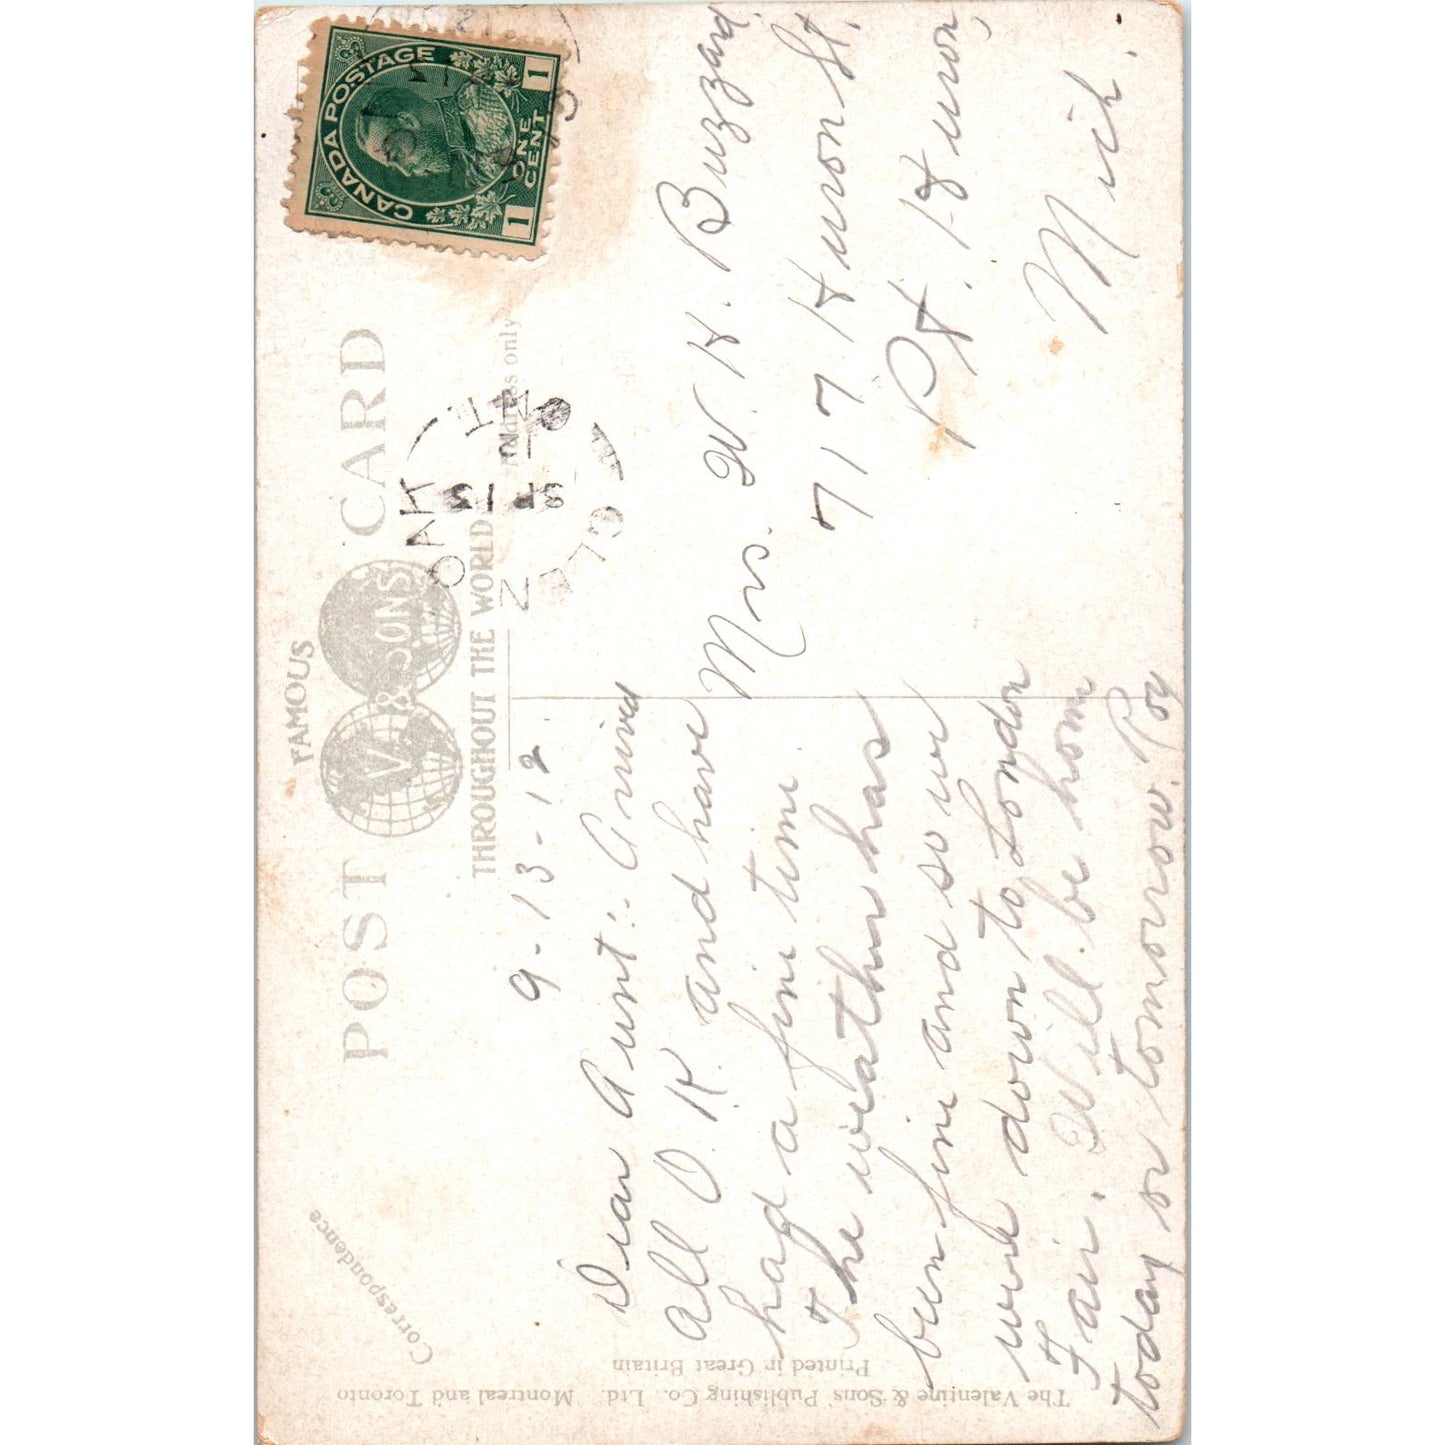 FAMOUS
POST CARD
V. & SONS
THROUGHOUT THE WORLD
Correspondence
Address only
CANADA POSTAGE
1 ONE CENT 1
GLEN OAK ONT
SP 13
12
9-13-12
Dear Aunt:- Arrived
all O.K. and have
had a fine time
The weather has
been fine and some
were down to London
Fair. Will be home
today or tomorrow. Roy
Mrs. W. H. Buzzard.
717 Huron St.
Pt. Huron,
Mich.
The Valentine & Sons' Publishing Co., Ltd. Montreal and Toronto
Printed in Great Britain